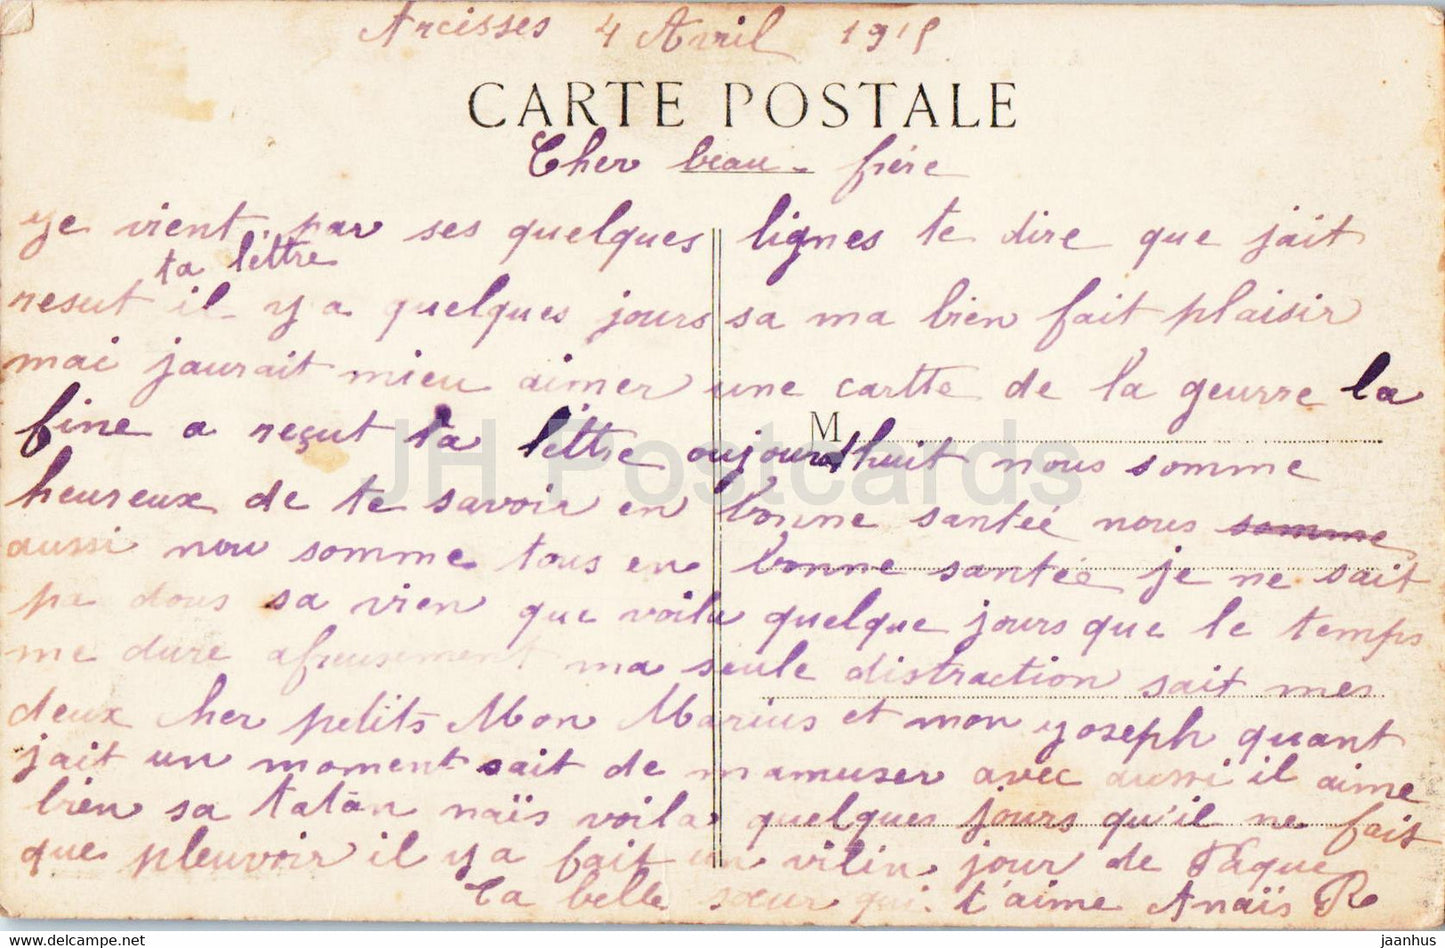 Arcisses 4 Avril 1915
CARTE POSTALE
Cher beau-frère
ye vient par ses quelques lignes te dire que jait
ta lettre
resut il y a quelques jours sa ma bien fait plaisir
mai jaurait mieu aimer une cartte de la geurre la
fine a reçut ta lettre oujourdhuit nous somme
M
heureux de te savoir en bonne santée nous somme
aussi nou somme tous en bonne santée je ne sait
pa dous sa vien que voila quelque jours que le temps
me dure afreusement ma seule distraction sait mes
deux cher petits Mon Marius et mon yoseph quant
jait un moment sait de mamuser avec aussi il aime
bien sa tatan naïs voila quelques jours qu'il ne fait
que pleuvoir il y a fait un vilin jour de Paque
Ta belle sœur qui t'aime Anaïs R
JH Postcards
www.delcampe.net
jaanhus